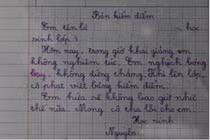 Bản kiểm điểm
Em tên là học
sinh lớp 3
Hôm nay, trong giờ khai giảng em
không nghiêm túc. Em nghịch bóng
bay, không đứng thẳng. Khi lên lớp,
cô phạt viết bảng kiểm điểm.
Em hứa sẽ không bao giờ như
thế nữa. Mong cô tha lỗi cho em.
Học sinh
Nguyên